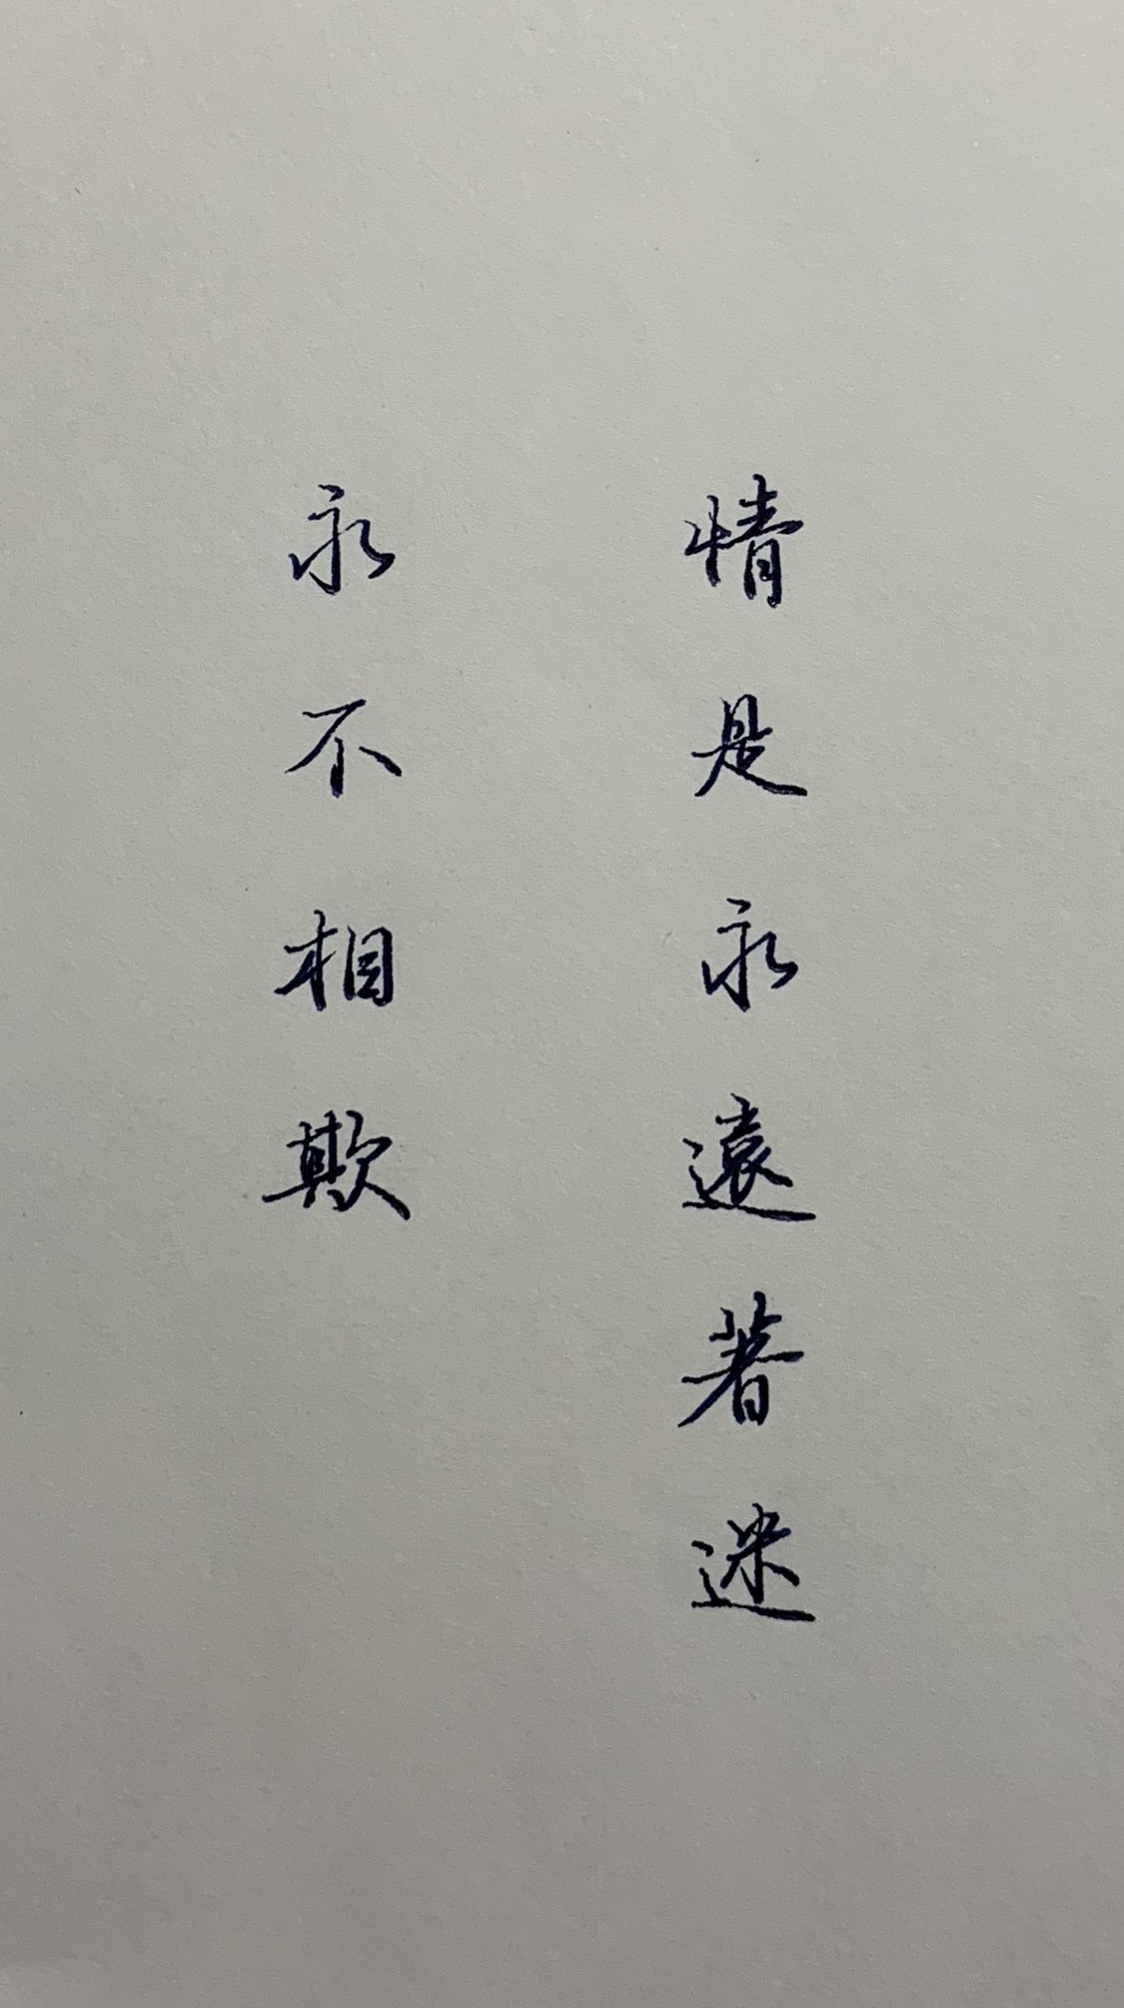 情是永遠著迷
永不相欺